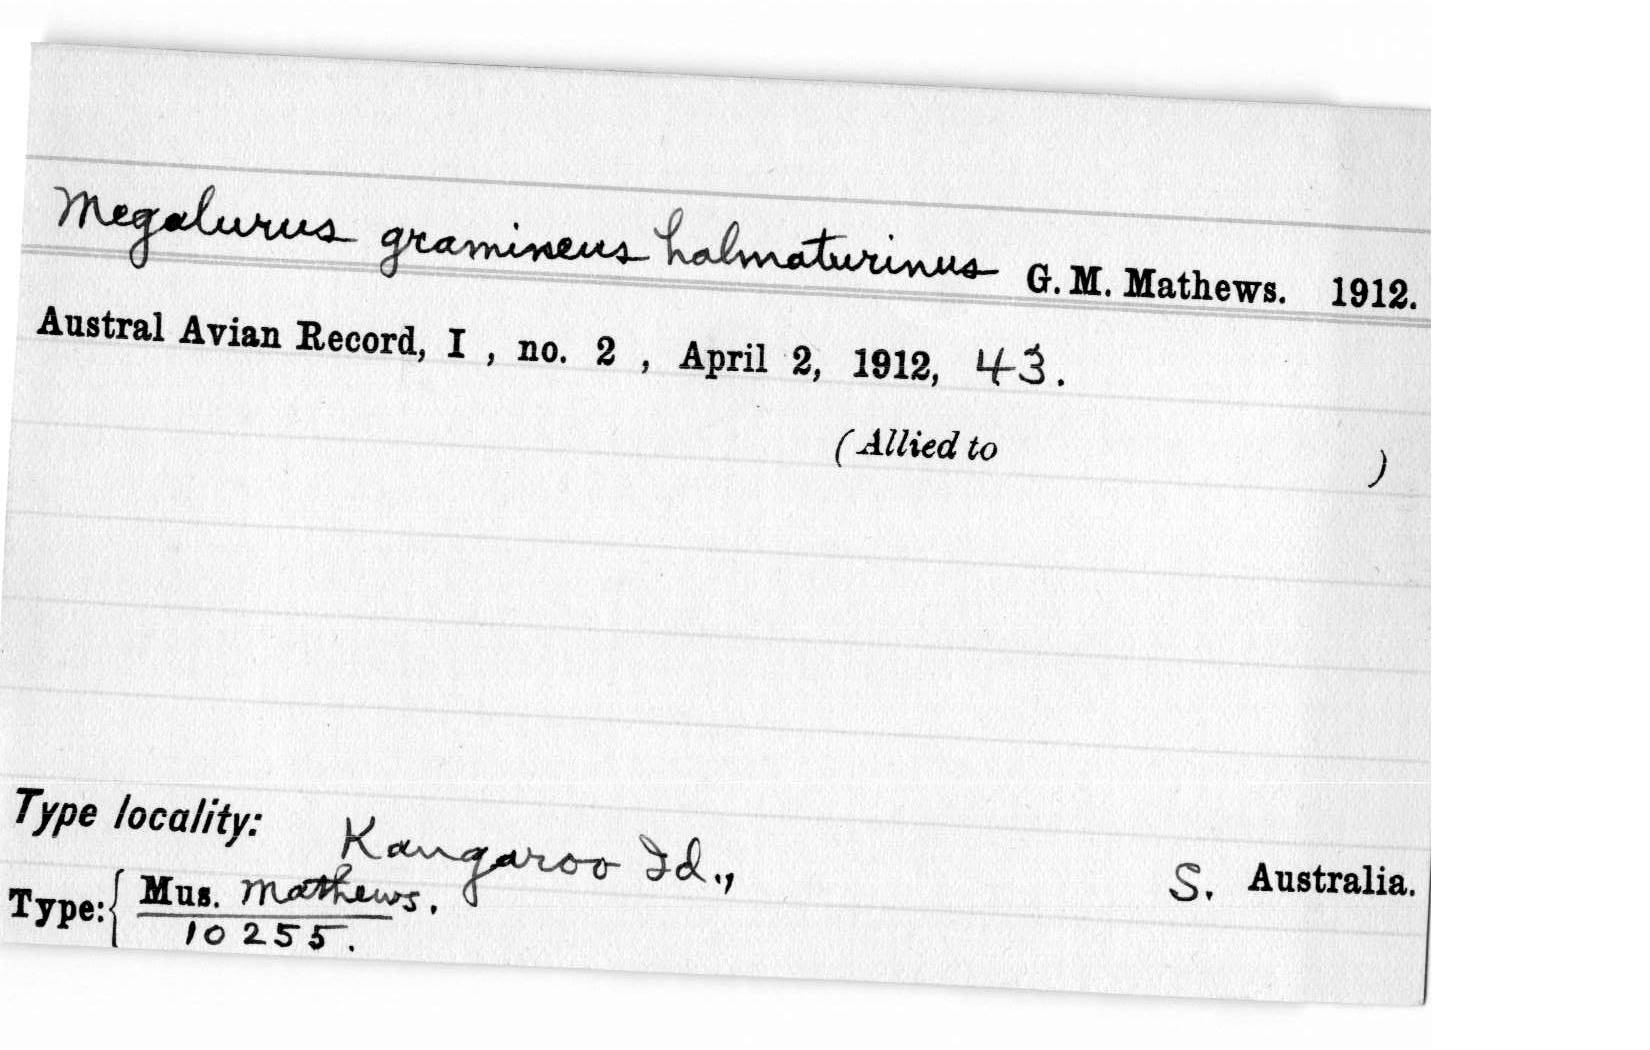 Megalurus gramineus halmaturinus G. M. Mathews. 1912.
Austral Avian Record, I , no. 2 , April 2, 1912, 43.
(Allied to )
Type locality: Kangaroo Id., S. Australia.
Type: { Mus. Mathews.
10255.